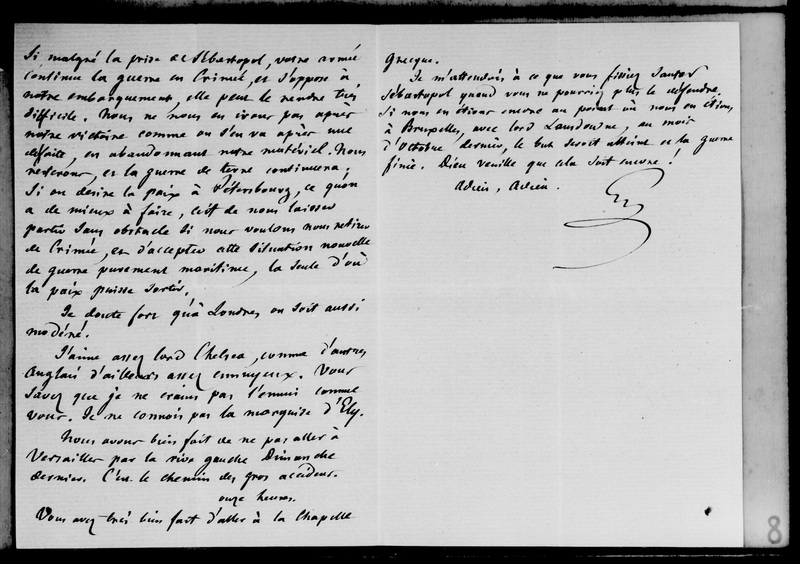 Si malgré la prise de Sébastopol, votre armée
continue la guerre en Crimée, et s'oppose à
notre embarquement, elle peut le rendre très
difficile. Nous ne nous en irons pas après
notre victoire comme on s'en va après une
défaite, en abandonnant notre matériel. Nous
resterons, et la guerre de terre continuera.
Si on désire la paix à Pétersbourg, ce qu'on
a de mieux à faire, c'est de nous laisser
partir sans obstacle si nous voulons nous retirer
de Crimée, et d'accepter cette situation nouvelle
de guerre purement maritime, la seule d'où
la paix puisse sortir.
Je doute fort qu'à Londres on soit aussi
modéré.
J'aime assez lord Chelsea, comme d'autres
anglais d'ailleurs assez ennuyeux. Vous
savez que je ne crains pas l'ennui comme
vous. Je ne connois pas la marquise d'Ely.
Nous avons bien fait de ne pas aller à
Versailles par la rive gauche Dimanche
dernier. C'est le chemin des gros accidens.
onze heures.
Vous avez très bien fait d'aller à la Chapelle
grecque.
Je m'attendois à ce que vous fissiez sauter
Sébastopol quand vous ne pourriez plus le défendre.
Si nous en étions encore au point où nous en étions,
à Bruxelles, avec lord Lansdowne, au mois
d'Octobre dernier, le but seroit atteint et la guerre
finie. Dieu veuille que cela soit encore !
Adieu, Adieu.
8